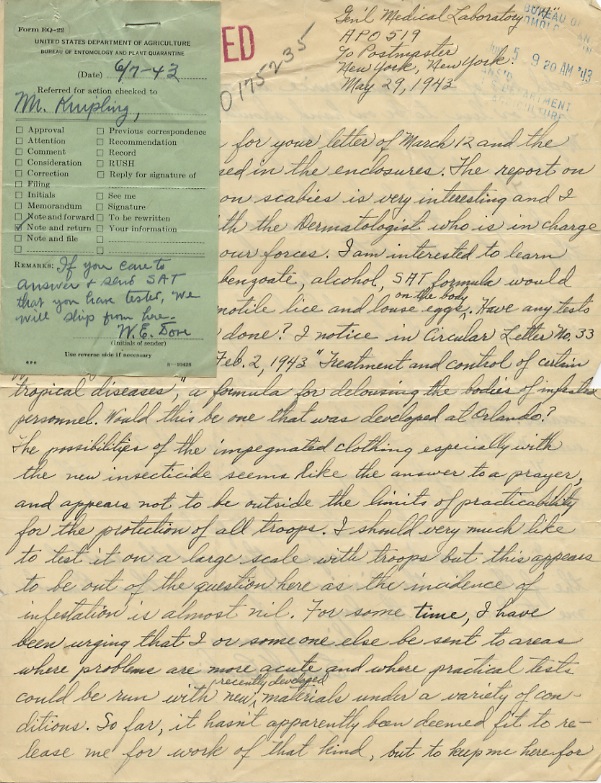 Form EQ-22
UNITED STATES DEPARTMENT OF AGRICULTURE
BUREAU OF ENTOMOLOGY AND PLANT QUARANTINE
(Date) 6/7-43
Referred for action checked to
Mr. Knipling,
☐ Approval ☐ Previous correspondence
☐ Attention ☐ Recommendation
☐ Comment ☐ Record
☐ Consideration ☐ RUSH
☐ Correction ☐ Reply for signature of
☐ Filing
☐ Initials ☐ See me
☐ Memorandum ☐ Signature
☐ Note and forward ☐ To be rewritten
☑ Note and return ☐ Your information
☐ Note and file ☐
REMARKS: If you care to
answer & send SAT
that you have tested, we
will ship from here.
W. E. Dove
(Initials of sender)
Use reverse side if necessary
ED
0175235
Gen'l Medical Laboratory
APO 519
% Postmaster
New York, New York
May 29, 1943
BUREAU OF
5 9 20 AM '43
DEPARTMENT
for your letter of March 12 and the
sed in the enclosures. The report on
on scabies is very interesting and I
th the Dermatologist who is in charge
our forces. I am interested to learn
benzoate, alcohol, SAT formula would
motile lice and louse eggs on the body. Have any tests
done? I notice in Circular Letter No. 33
Feb. 2, 1943 "Treatment and control of certain
tropical diseases", a formula for delousing the bodies of infested
personnel. Would this be one that was developed at Orlando?
The possibilities of the impegnated clothing especially with
the new insecticide seems like the answer to a prayer,
and appears not to be outside the limits of practicability
for the protection of all troops. I should very much like
to test it on a large scale with troops but this appears
to be out of the question here as the incidence of
infestation is almost nil. For some time, I have
been urging that I or someone else be sent to areas
where problems are more acute and where practical tests
could be run with new, recently developed materials under a variety of con-
ditions. So far, it hasn't apparently been deemed fit to re-
lease me for work of that kind, but to keep me here for